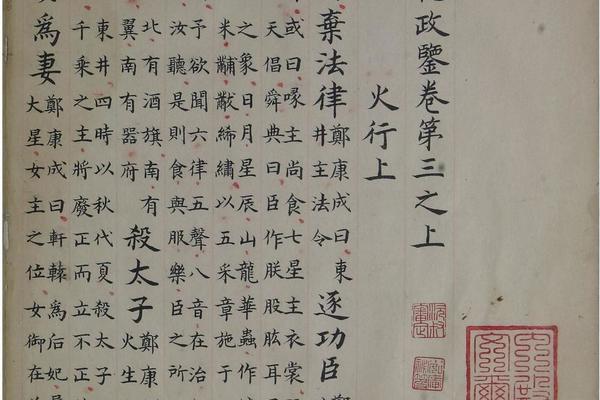 政鑒卷第三之上
火行上
棄法律鄭康成曰東井主法令逐功臣
或曰喙主尚食七星主衣裳
天倡舜典曰臣作朕股肱耳
之象日月星辰山龍華蟲作
米黼黻絺繡以五采章施于
予欲聞六律五聲八音在治
汝聽是則食與服樂臣之所
北有酒旗南有翼南有器府殺太子鄭康火生
東井四時以秋代夏殺太子
千乘之主將廢正而立不正
為妻鄭康成曰軒轅為后妃大星女主之位女御在